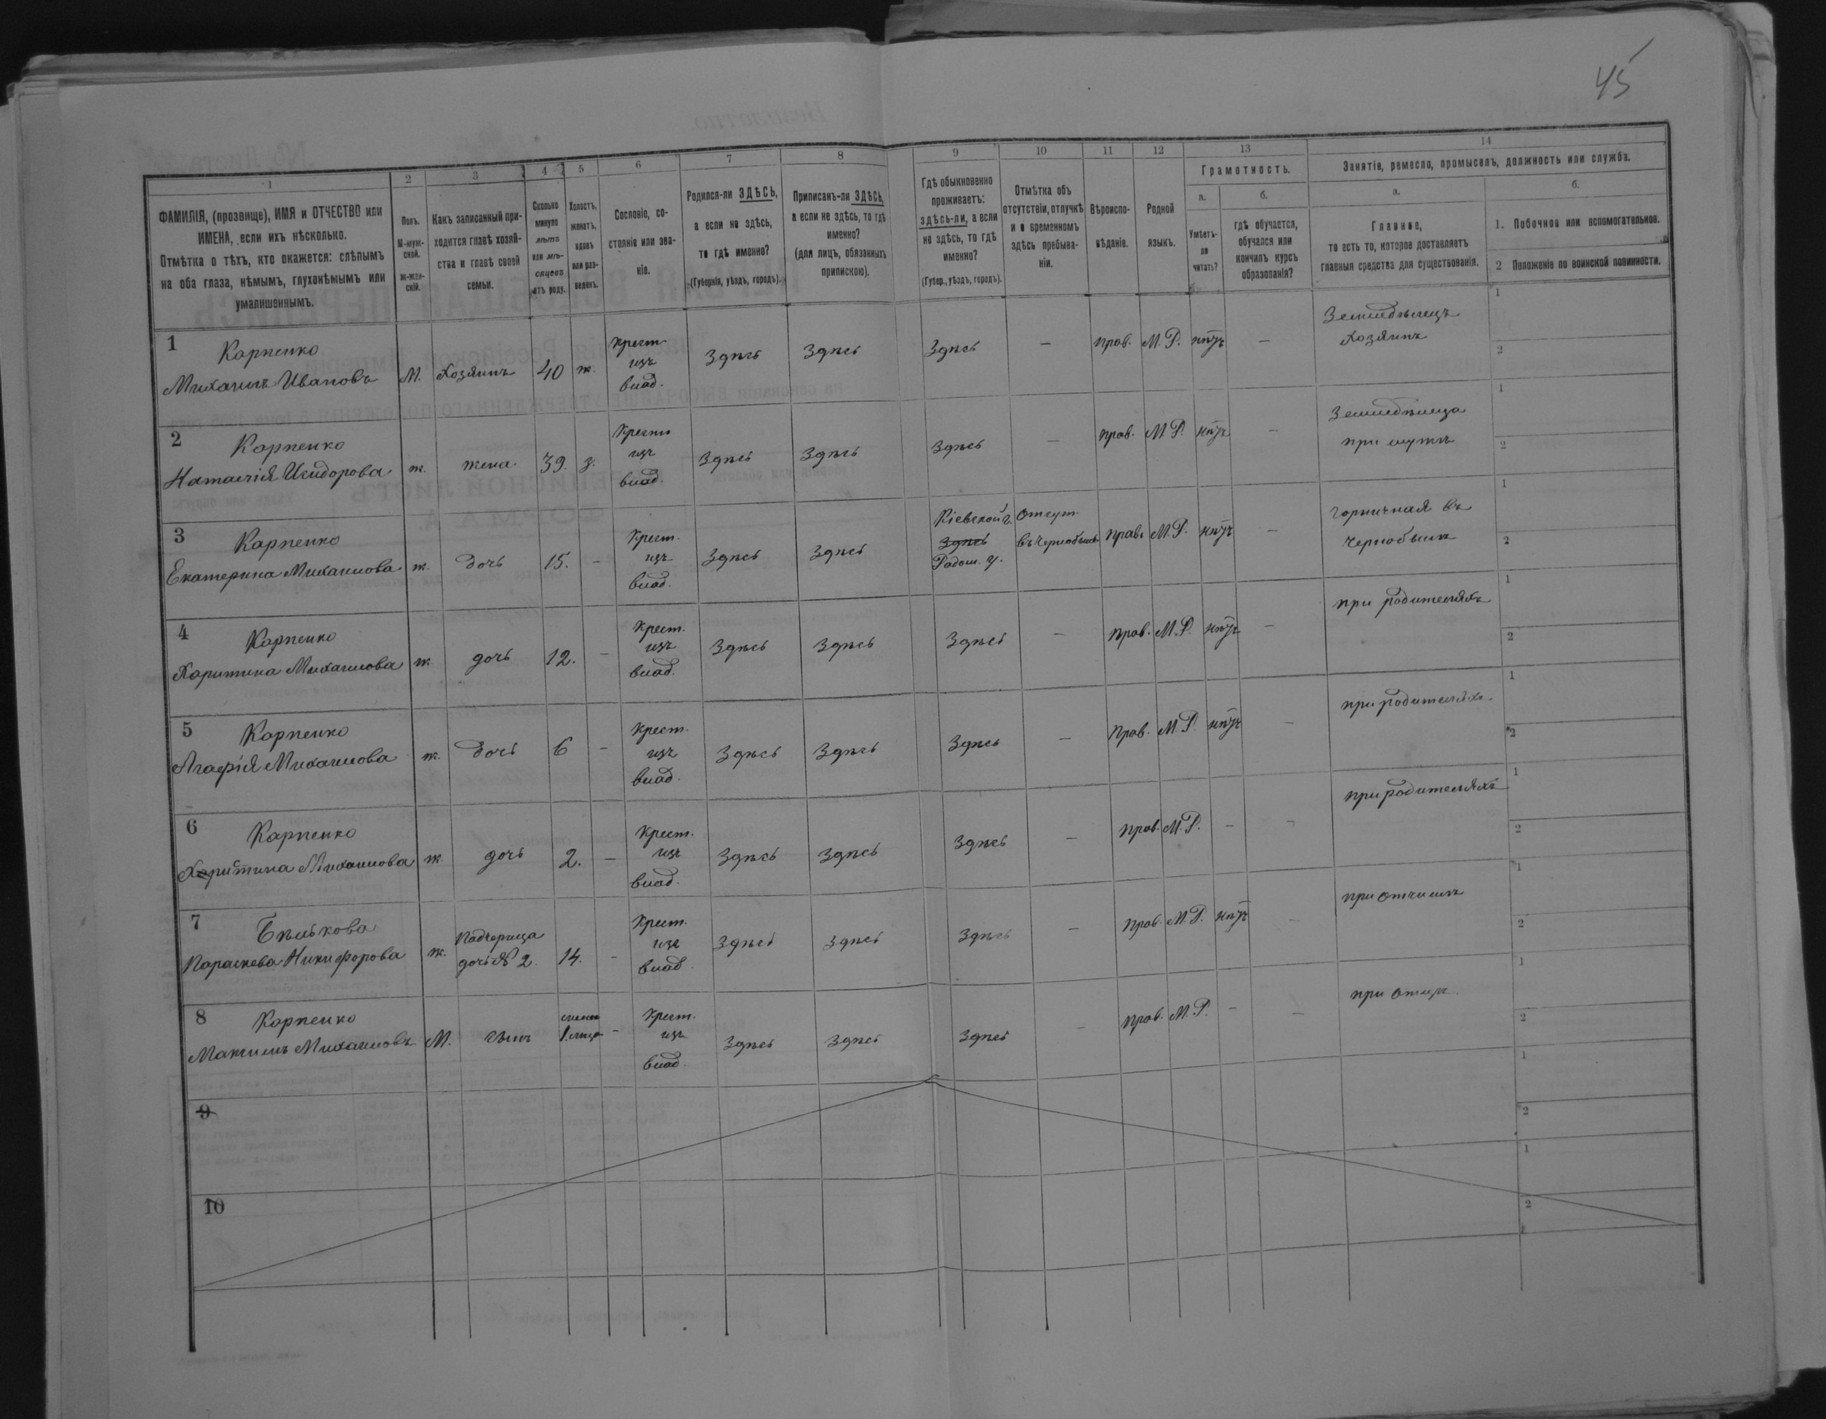 45
1
ФАМИЛІЯ, (прозвище), ИМЯ и ОТЧЕСТВО или
ИМЕНА, если ихъ нѣсколько.
Отмѣтка о тѣхъ, кто окажется: слѣпымъ
на оба глаза, нѣмымъ, глухонѣмымъ или
умалишеннымъ.
2
Полъ.
М-муж-
ской.
Ж-жен-
скій.
3
Какъ записанный при-
ходится главѣ хозяй-
ства и главѣ своей
семьи.
4
Сколько
минуло
лѣтъ
или мѣ-
сяцевъ
отъ роду.
5
Холостъ,
женатъ,
вдовъ
или раз-
веденъ.
6
Сословіе, со-
стояніе или зва-
ніе.
7
Родился-ли ЗДѢСЬ,
а если не здѣсь,
то гдѣ именно?
(Губернія, уѣздъ, городъ).
8
Приписанъ-ли ЗДѢСЬ,
а если не здѣсь, то гдѣ
именно?
(для лицъ, обязанныхъ
припискою).
9
Гдѣ обыкновенно
проживаетъ:
здѣсь-ли, а если
не здѣсь, то гдѣ
именно?
(Губер., уѣздъ, городъ).
10
Отмѣтка объ
отсутствіи, отлучкѣ
и о временномъ
здѣсь пребыва-
ніи.
11
Вѣроиспо-
вѣданіе.
12
Родной
языкъ.
13
Грамотность.
а.
Умѣетъ-
ли
читать?
б.
гдѣ обучается,
обучался или
кончилъ курсъ
образованія?
14
Занятія, ремесло, промыселъ, должность или служба.
а.
Главное,
то есть то, которое доставляетъ
главныя средства для существованія.
б.
1. Побочное или вспомогательное.
2 Положеніе по воинской повинности.
1
Карпенко
Михаилъ Ивановъ
М.
Хозяинъ
40
ж.
Крест.
изъ
влад.
Здѣсь
Здѣсь
Здѣсь
—
прав.
М.Р.
нѣтъ
—
Земледѣлецъ
хозяинъ
1
2
2
Карпенко
Наталія Исидорова
ж.
жена
39.
з.
Крест.
изъ
влад.
Здѣсь
Здѣсь
Здѣсь
—
прав.
М.Р.
нѣтъ
—
Земледѣлица
при мужѣ
1
2
3
Карпенко
Екатерина Михаилова
ж.
дочь
15.
-
Крест.
изъ
влад.
Здѣсь
Здѣсь
Кіевской г.
Здѣсь
Радом. у.
Отсут.
въ Чернобылѣ
прав.
М.Р.
нѣтъ
-
горничная въ
Чернобылѣ
1
2
4
Карпенко
Харитина Михаилова
ж.
дочь
12.
-
Крест.
изъ
влад.
Здѣсь
Здѣсь
Здѣсь
—
прав.
М.Р.
нѣтъ
-
при родителяхъ
1
2
5
Карпенко
Агафія Михаилова
ж.
дочь
6
-
Крест.
изъ
влад.
Здѣсь
Здѣсь
Здѣсь
—
прав.
М.Р.
нѣтъ
-
при родителяхъ
1
2
6
Карпенко
Христина Михаилова
ж.
дочь
2.
-
Крест.
изъ
влад.
Здѣсь
Здѣсь
Здѣсь
—
прав.
М.Р.
-
-
при родителяхъ
1
2
7
Бѣлькова
Параскева Никифорова
ж.
Падчерица
дочь № 2.
14.
-
Крест.
изъ
влад.
Здѣсь
Здѣсь
Здѣсь
-
прав.
М.Р.
нѣтъ
-
при отчимѣ
1
2
8
Карпенко
Максимъ Михаиловъ
М.
сынъ
-
Крест.
изъ
влад.
Здѣсь
Здѣсь
Здѣсь
-
прав.
М.Р.
-
-
при отцѣ
1
2
9
1
2
10
1
2